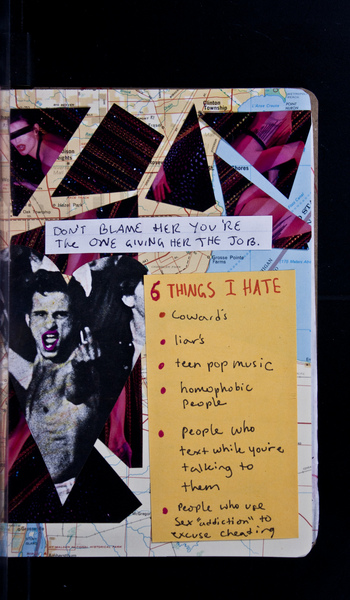 Clinton
Township
Shores
DON'T BLAME HER YOU'RE
THE ONE GIVING HER THE JOB.
Grosse Pointe
Farms
6 THINGS I HATE
• coward's
• liar's
• teen pop music
• homophobic
people
• people who
text while you're
talking to
them
• People who use
sex "addiction" to
excuse cheating